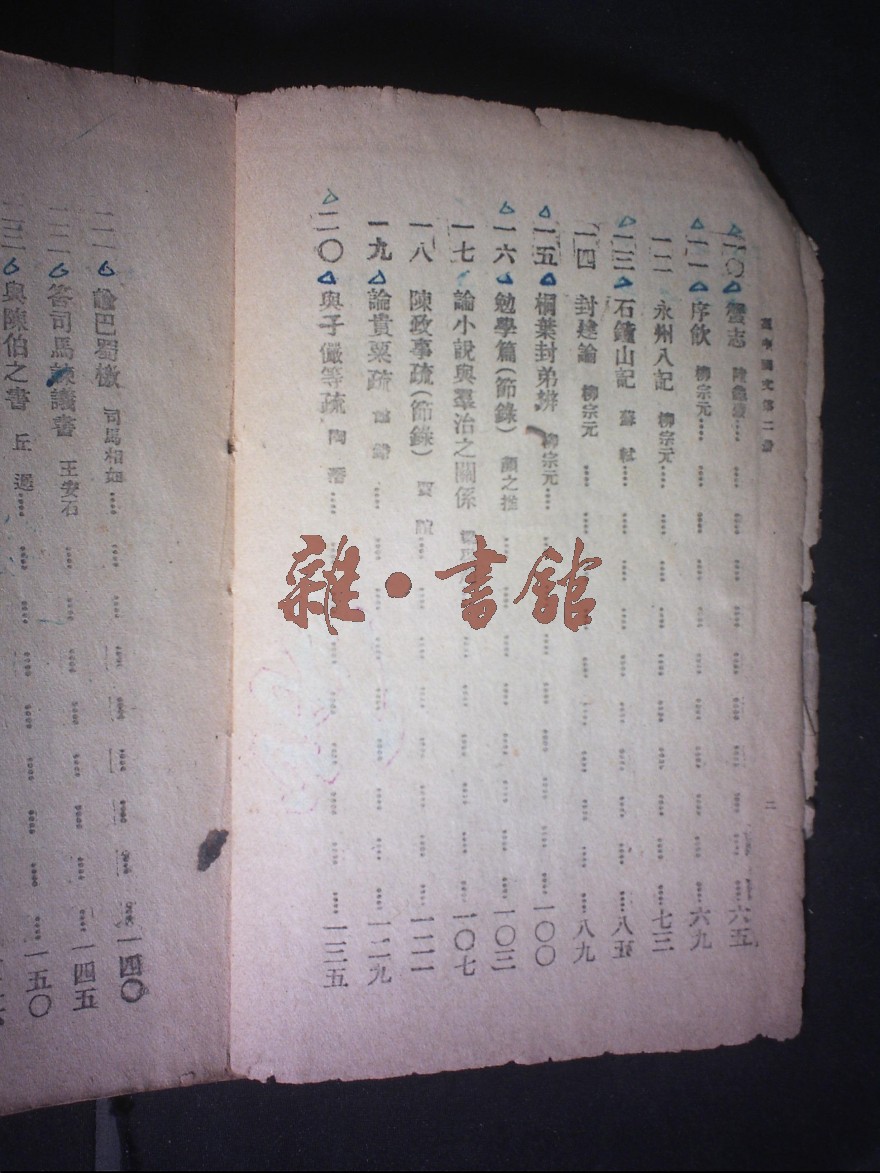 高中國文第二冊
二
一〇 蟹志 陸龜蒙 六五
一一 序飲 柳宗元 六九
一二 永州八記 柳宗元 七三
一三 石鐘山記 蘇軾 八五
一四 封建論 柳宗元 八九
一五 桐葉封弟辨 柳宗元 一〇〇
一六 勉學篇(節錄) 顏之推 一〇三
一七 論小說與羣治之關係 一〇七
一八 陳政事疏(節錄) 賈誼 一二一
一九 論貴粟疏 鼂錯 一二九
二〇 與子儼等疏 陶潛 一三五
雜·書館
二一 諭巴蜀檄 司馬相如 一四〇
二二 答司馬諫議書 王安石 一四五
二三 與陳伯之書 丘遲 一五〇